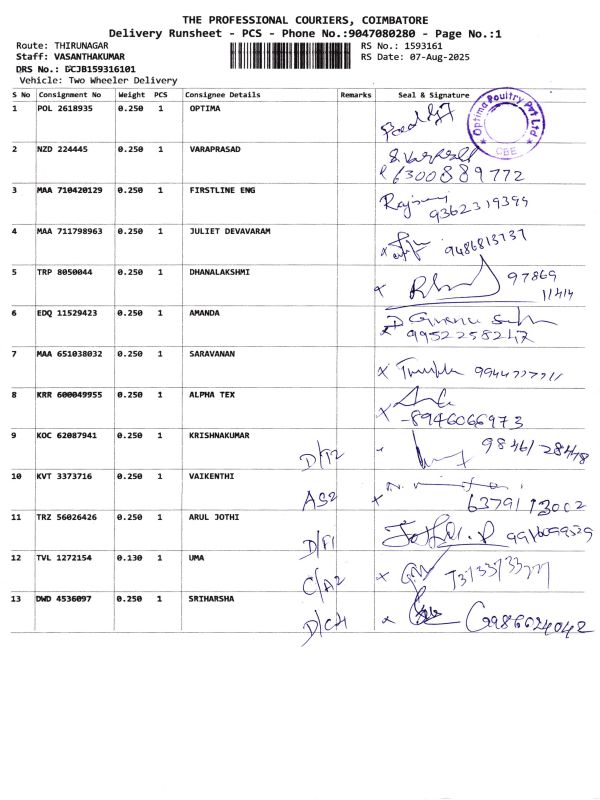 THE PROFESSIONAL COURIERS, COIMBATORE
Delivery Runsheet - PCS - Phone No.:9047080280 - Page No.:1
Route: THIRUNAGAR RS No.: 1593161
Staff: VASANTHAKUMAR RS Date: 07-Aug-2025
DRS No.: DCJB159316101
Vehicle: Two Wheeler Delivery
S No Consignment No Weight PCS Consignee Details Remarks Seal & Signature
1 POL 2618935 0.250 1 OPTIMA
Optima Poultry Pvt Ltd
CBE
2 NZD 224445 0.250 1 VARAPRASAD
6300889772
3 MAA 710420129 0.250 1 FIRSTLINE ENG
9362319399
4 MAA 711798963 0.250 1 JULIET DEVAVARAM
9486813737
5 TRP 8050044 0.250 1 DHANALAKSHMI
97869
11414
6 EDQ 11529423 0.250 1 AMANDA
9952258247
7 MAA 651038032 0.250 1 SARAVANAN
8 KRR 600049955 0.250 1 ALPHA TEX
8946066973
9 KOC 62087941 0.250 1 KRISHNAKUMAR
10 KVT 3373716 0.250 1 VAIKENTHI
AS2
6379113002
11 TRZ 56026426 0.250 1 ARUL JOTHI
12 TVL 1272154 0.130 1 UMA
C/A2
13 DWD 4536097 0.250 1 SRIHARSHA